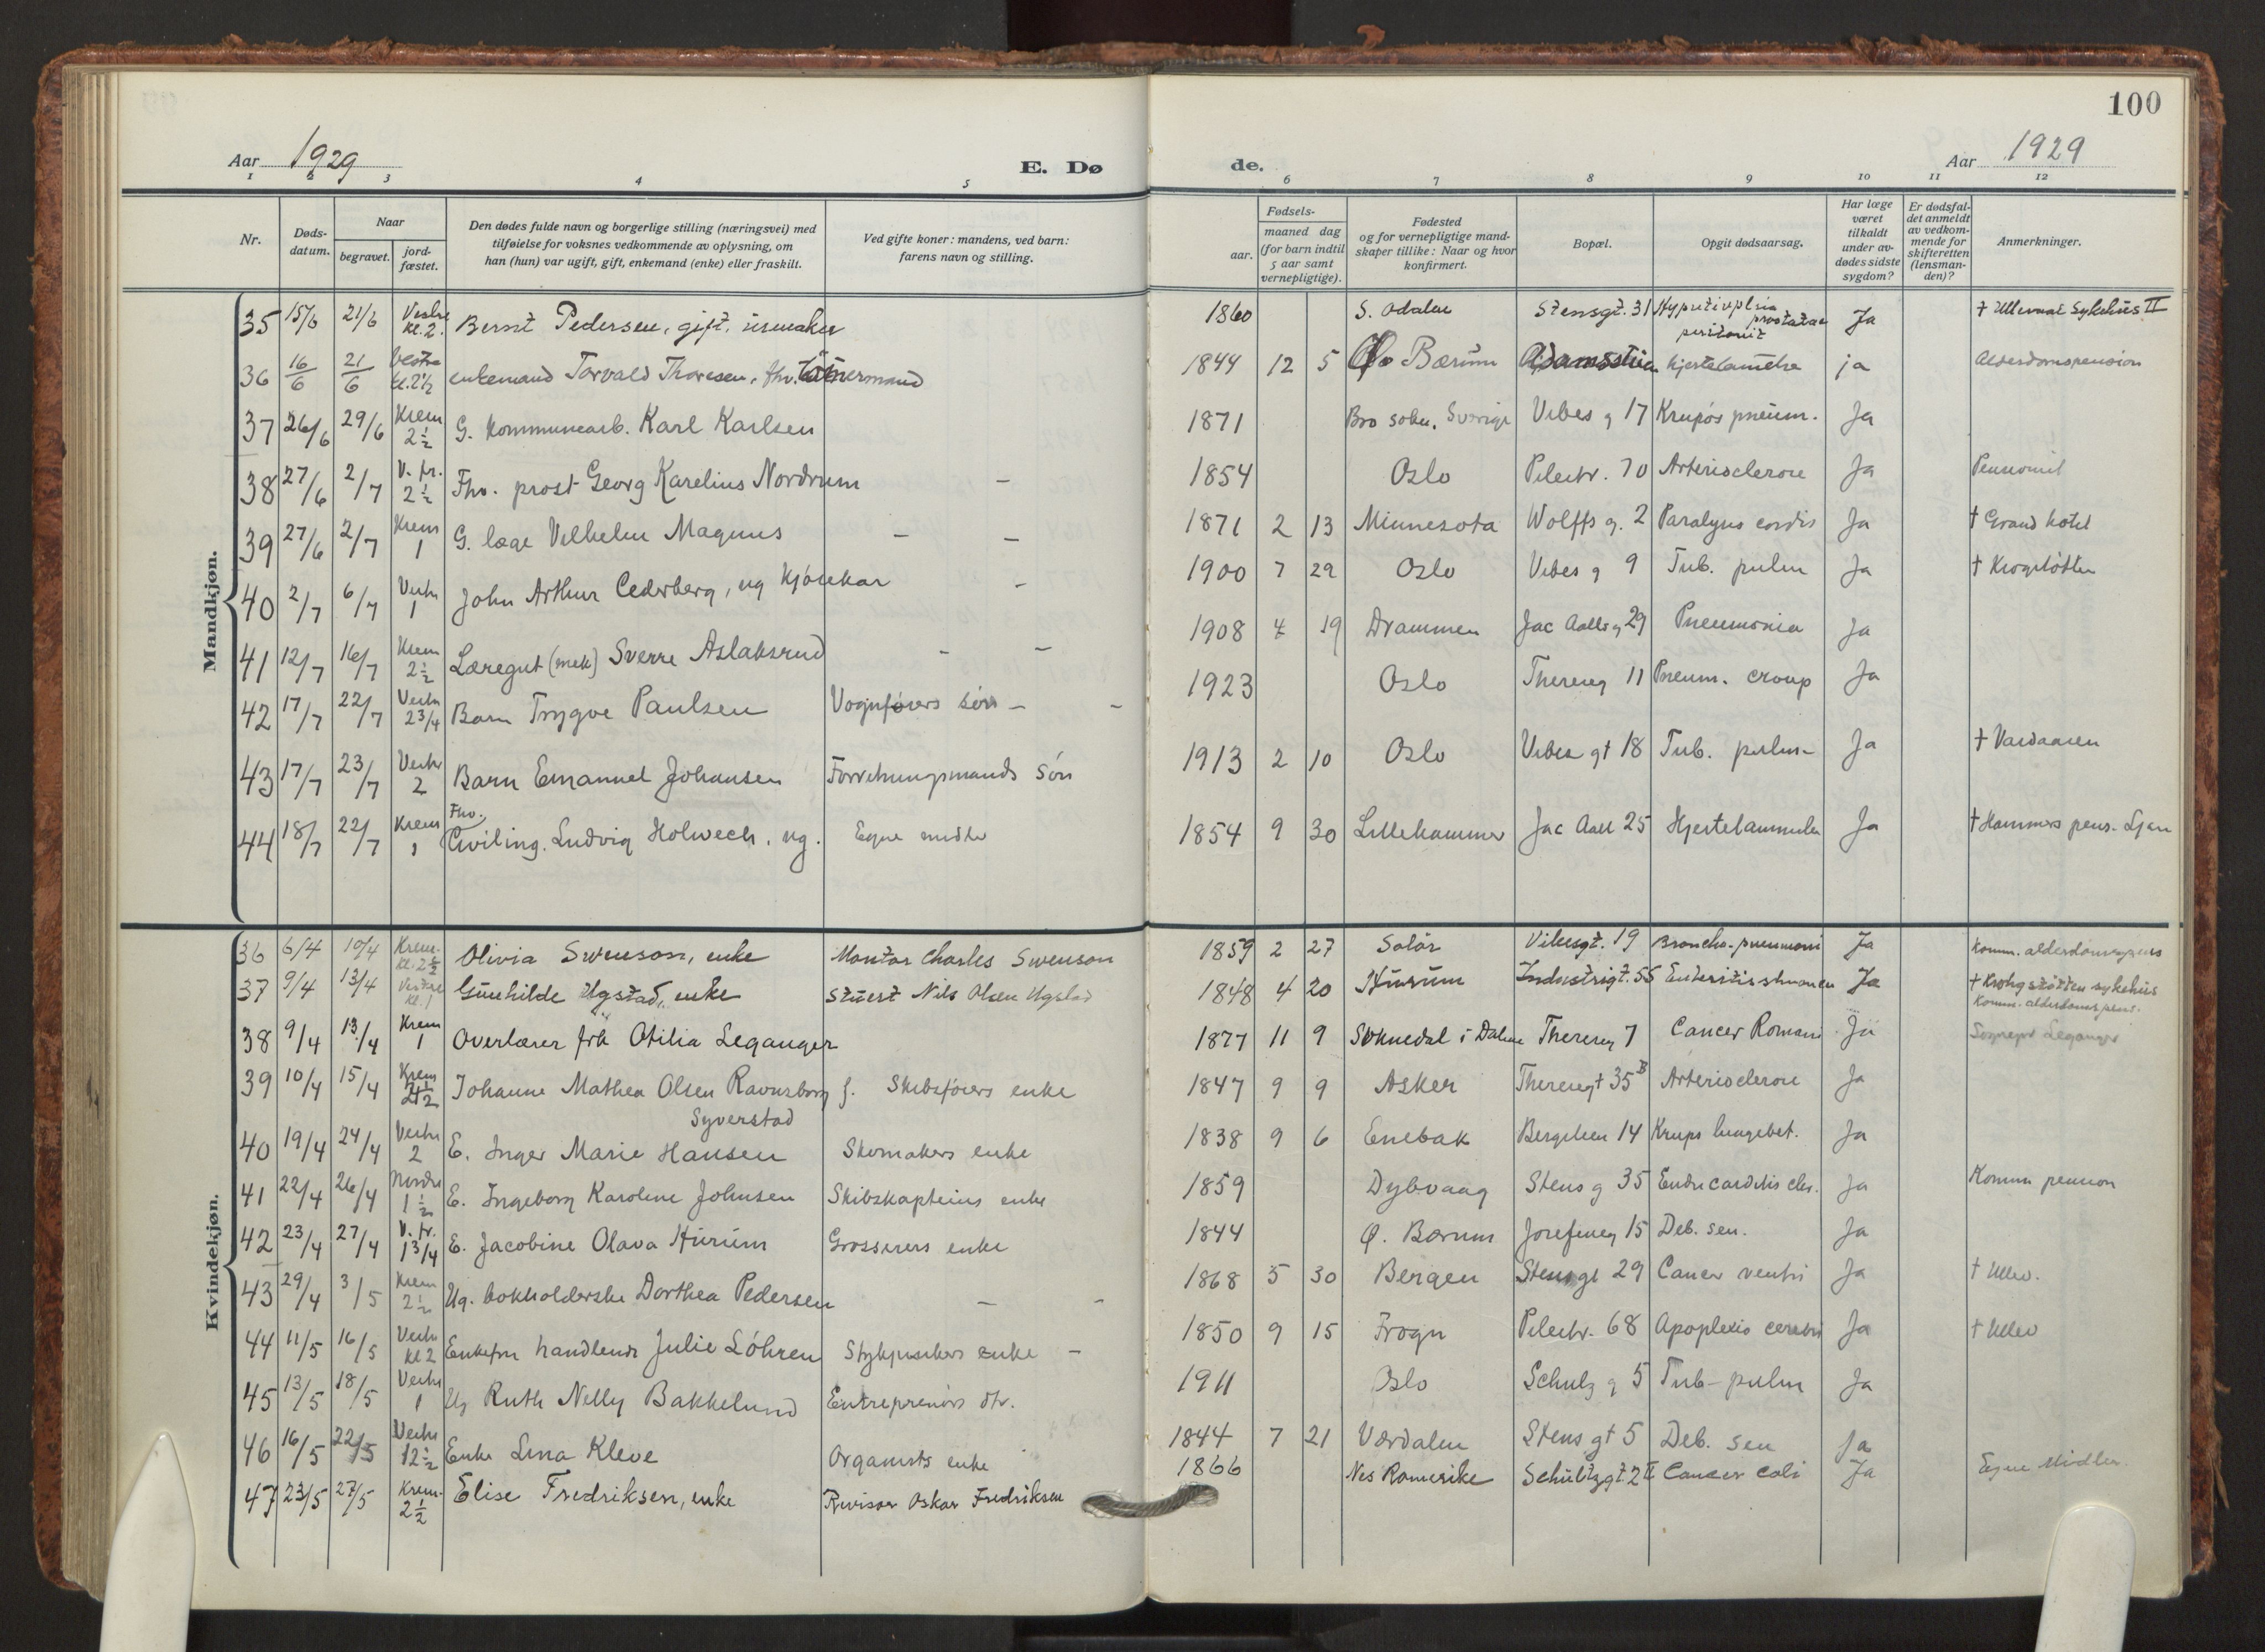 100
Aar 1929 E. Døde. Aar 1929
1 2 3 4 5 6 7 8 9 10 11 12
Nr. Døds-datum. Naar begravet. jord-fæstet. Den dødes fulde navn og borgerlige stilling (næringsvei) med tilføielse for voksnes vedkommende av oplysning, om han (hun) var ugift, gift, enkemand (enke) eller fraskilt. Ved gifte koner: mandens, ved barn: farens navn og stilling. Fødsels- aar. maaned dag (for barn indtil 5 aar samt vernepligtige). Fødested og for vernepligtige mand-skaper tillike: Naar og hvor konfirmert. Bopæl. Opgit dødsaarsag. Har læge været tilkaldt under av-dødes sidste sygdom? Er dødsfal-det anmeldt av vedkom-mende for skifteretten (lensman-den)? Anmerkninger.
Mandkjøn.
35 15/6 21/6 Vestre kl. 2. Bernt Pedersen, gift, urmaker 1860 S. Odalen Stensgt. 31 prostatae peritonit Ja † Ullevaal Sykehus II
36 16/6 21/6 Vestre kl. 2½ enkemand Torvald Thoresen, fhv. tømmermand 1844 12 5 Bærum Adamstuen hjertelammelse ja Alderdomspension
37 26/6 29/6 Krem 2½ G. Kommunearb. Karl Karlsen 1871 Bro sokn, Sverige Vibes g 17 Krupøs pneum. Ja
38 27/6 2/7 V. fr. 2½ Fhv. prost Georg Karelius Nordrum - 1854 Oslo Pilestr. 70 Arteriosclerose Ja Pensionist
39 27/6 2/7 Krem 1 G. læge Vilhelm Magnus - - 1871 2 13 Minnesota Wolffs g. 2 Paralysis cordis Ja † Grand hotel
40 2/7 6/7 Vestre 1 John Arthur Cederberg, ug kjørekar - 1900 7 29 Oslo Vibes g 9 Tub. pulm Ja † Krogstøtten
41 12/7 16/7 Krem 2½ Læregut (mek) Sverre Aslaksrud - - 1908 4 19 Drammen Jac Aalls g 29 Pneumonia Ja
42 17/7 22/7 Vestre 2 3/4 Barn Trygve Paulsen Vognførers søn - - 1923 Oslo Thereseg 11 Pneum. croup Ja
43 17/7 23/7 Vestre 2 Barn Emanuel Johansen Forretningsmands søn 1913 2 10 Oslo Vibes gt 18 Tub. pulm- Ja † Vardaasen
44 18/7 22/7 Krem 1 Fhv. Civiling. Ludvig Holwech, ug. Egne midler 1854 9 30 Lillehammer Jac Aall 25 Hjertelammelse Ja † Hammers pens. Ljan
Kvindekjøn.
36 6/4 10/4 Krem. kl. 2½ Olivia Swenson, enke Montør Charles Swenson 1859 2 27 Solør Vibesgt. 19 Broncho-pneumoni Ja Komm. alderdomspens
37 9/4 13/4 Vestre kl. 1 Gunhilde Ugstad, enke Stuert Nils Olsen Ugstad 1848 4 20 Hurum Industrigt. 55 Enteritis Ja † Krohgstøtten sykehus
Komm. alderdomspens.
38 9/4 13/4 Krem 1 Overlærer frk Otilia Leganger 1877 11 9 Soknedal i Dalene Thereseg 7 Cancer Ja Sognepr Leganger
39 10/4 15/4 Krem 2½ Johanne Mathea Olsen Ravnsborg f. Syverstad Skibsførers enke 1847 9 9 Asker Theresegt 35 B Arteriosclerose Ja
40 19/4 24/4 Vestre 2 E. Inger Marie Hansen Skomakers enke 1838 9 6 Enebak Bergslien 14 Krupøs lungebet. Ja
41 22/4 26/4 Nordre 1½ E. Ingeborg Karoline Johnsen Skibskapteins enke 1859 Dybvaag Stens g 35 Endocarditis chr. Ja Komm pension
42 23/4 27/4 V. fr. 1 3/4 E. Jacobine Olava Hurum Grosserers enke 1844 Ø. Bærum Josefineg 15 Deb. sen. Ja
43 29/4 3/5 Krem 2½ Ug. bokholderske Dorthea Pedersen - - 1868 5 30 Bergen Stensgt 29 Cancer ventri Ja † Ullev.
44 11/5 16/5 Vestre kl 2 Enkefru handlende Julie Løhren Stykjunkers enke - 1850 9 15 Frogn Pilestr. 68 Apoplexio cerebri Ja † Ullev
45 13/5 18/5 Vestre 1 Ug Ruth Nelly Bakkelund Entreprenørs dtr. 1911 Oslo Schulz g 5 Tub-pulm Ja
46 16/5 22/5 Vestre 12½ Enke Lina Kleve Organists enke 1844 7 21 Værdalen Stens gt 5 Deb. sen Ja
47 23/5 27/5 Krem. 2½ Elise Fredriksen, enke Revisor Oskar Fredriksen 1866 Nes Romerike Schultzgt 2 II Cancer coli Ja Egne Midler.